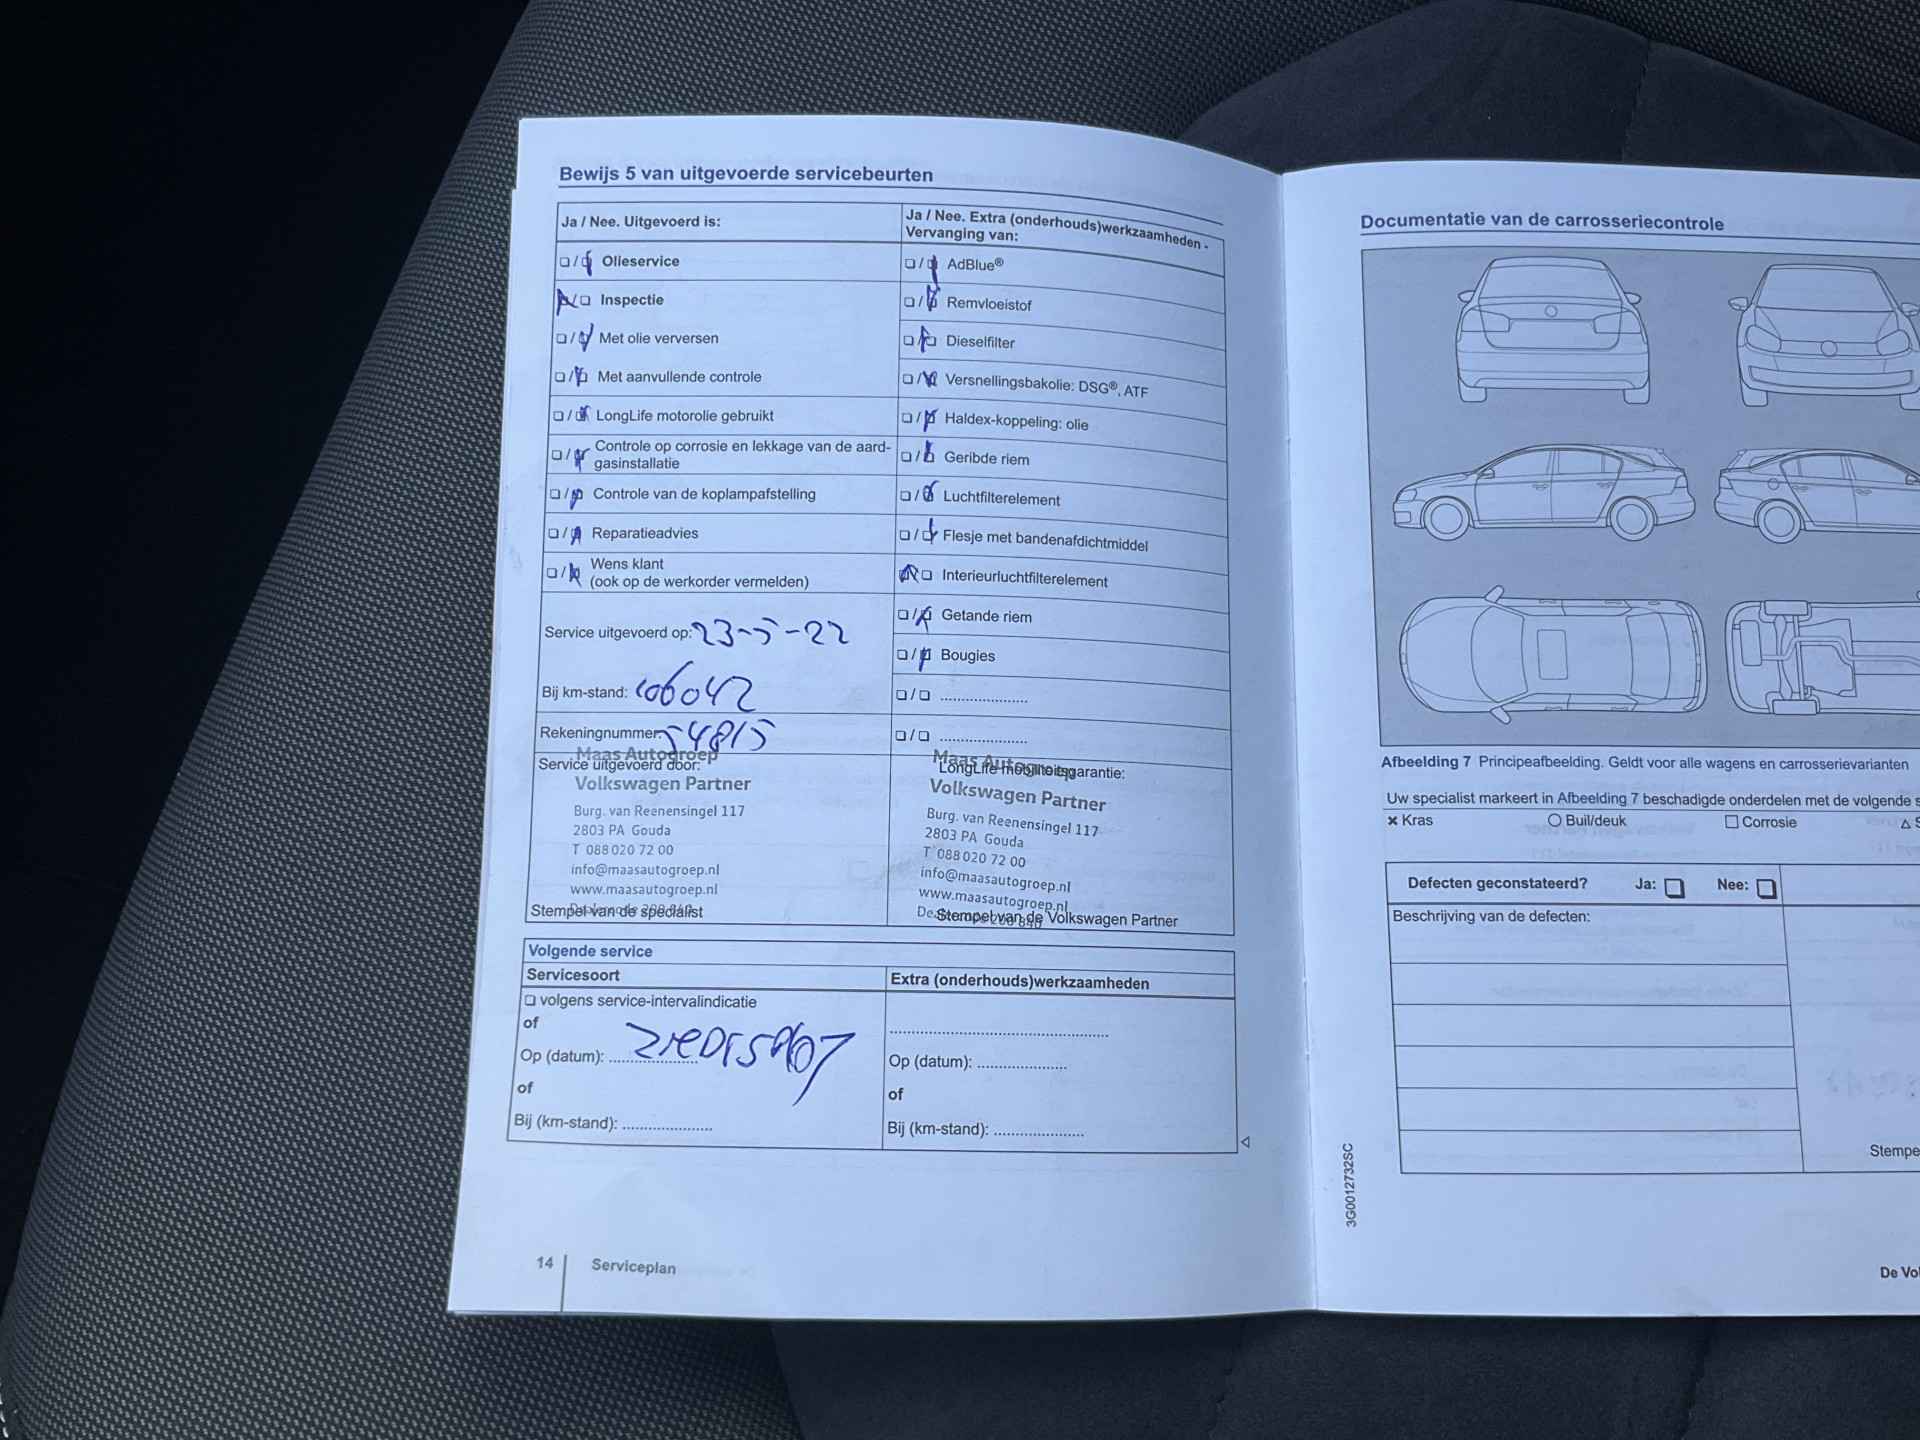 Bewijs 5 van uitgevoerde servicebeurten
Ja / Nee. Uitgevoerd is:
❏ / ❏ Olieservice
❏ / ❏ Inspectie
❏ / ❏ Met olie verversen
❏ / ❏ Met aanvullende controle
❏ / ❏ LongLife motorolie gebruikt
❏ / ❏ Controle op corrosie en lekkage van de aard-
gasinstallatie
❏ / ❏ Controle van de koplampafstelling
❏ / ❏ Reparatieadvies
❏ / ❏ Wens klant
(ook op de werkorder vermelden)
Service uitgevoerd op: 23-5-22
Bij km-stand: 106042
Rekeningnummer: 54815
Service uitgevoerd door:
Maas Autogroep
Volkswagen Partner
Burg. van Reenensingel 117
2803 PA Gouda
T 088 020 72 00
info@maasautogroep.nl
www.maasautogroep.nl
Stempel van de specialist
Ja / Nee. Extra (onderhouds)werkzaamheden -
Vervanging van:
❏ / ❏ AdBlue®
❏ / ❏ Remvloeistof
❏ / ❏ Dieselfilter
❏ / ❏ Versnellingsbakolie: DSG®, ATF
❏ / ❏ Haldex-koppeling: olie
❏ / ❏ Geribde riem
❏ / ❏ Luchtfilterelement
❏ / ❏ Flesje met bandenafdichtmiddel
❏ / ❏ Interieurluchtfilterelement
❏ / ❏ Getande riem
❏ / ❏ Bougies
❏ / ❏ ....................
❏ / ❏ ....................
LongLife mobiliteitsgarantie:
Maas Autogroep
Volkswagen Partner
Burg. van Reenensingel 117
2803 PA Gouda
T 088 020 72 00
info@maasautogroep.nl
www.maasautogroep.nl
Stempel van de Volkswagen Partner
Volgende service
Servicesoort
❏ volgens service-intervalindicatie
of
Op (datum): ....................
of
Bij (km-stand): ....................
Extra (onderhouds)werkzaamheden
..................................................
Op (datum): ....................
of
Bij (km-stand): ....................
14 Serviceplan
Documentatie van de carrosseriecontrole
Afbeelding 7 Principeafbeelding. Geldt voor alle wagens en carrosserievarianten
Uw specialist markeert in Afbeelding 7 beschadigde onderdelen met de volgende
× Kras ○ Buil/deuk □ Corrosie △
Defecten geconstateerd? Ja: ❏ Nee: ❏
Beschrijving van de defecten:
Stempe
3G0012732SC
De Vol